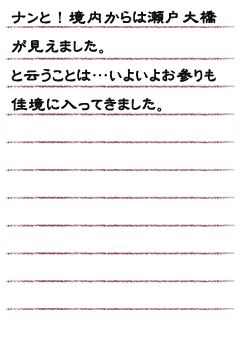 ナンと！境内からは瀬戸大橋
が見えました。
と云うことは…いよいよお参りも
佳境に入ってきました。